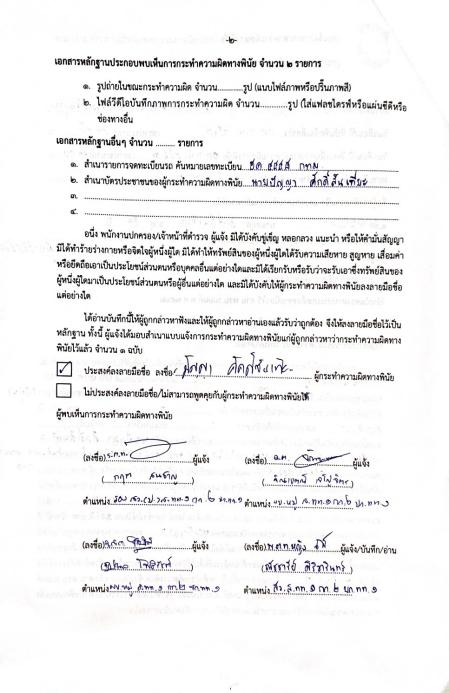 -๒-
เอกสารหลักฐานประกอบพบเห็นการกระทำความผิดทางพินัย จำนวน ๒ รายการ
๑. รูปถ่ายในขณะกระทำความผิด จำนวน............รูป (แนบไฟล์ภาพหรือปริ้นภาพสี)
๒. ไฟล์วีดีโอบันทึกภาพการกระทำความผิด จำนวน............รูป (ใส่แฟลชไดรฟ์หรือแผ่นซีดีหรือ
ช่องทางอื่น
เอกสารหลักฐานอื่นๆ จำนวน ......... รายการ
๑. สำเนารายการจดทะเบียนรถ คันหมายเลขทะเบียน กทม
๒. สำเนาบัตรประชาชนของผู้กระทำความผิดทางพินัย นายปัญญา
๓.
๔.
อนึ่ง พนักงานปกครอง/เจ้าหน้าที่ตำรวจ ผู้แจ้ง มิได้บังคับขู่เข็ญ หลอกลวง แนะนำ หรือให้คำมั่นสัญญา
มิได้ทำร้ายร่างกายหรือจิตใจผู้หนึ่งผู้ใด มิได้ทำให้ทรัพย์สินของผู้หนึ่งผู้ใดได้รับความเสียหาย สูญหาย เสื่อมค่า
หรือยึดถือเอาเป็นประโยชน์ส่วนตนหรือบุคคลอื่นแต่อย่างใดและมิได้เรียกรับหรือรับว่าจะรับเอาซึ่งทรัพย์สินของ
ผู้หนึ่งผู้ใดมาเป็นประโยชน์ส่วนตนหรือผู้อื่นแต่อย่างใด และมิได้บังคับให้ผู้กระทำความผิดทางพินัยลงลายมือชื่อ
แต่อย่างใด
ได้อ่านบันทึกนี้ให้ผู้ถูกกล่าวหาฟังและให้ผู้ถูกกล่าวหาอ่านเองแล้วรับว่าถูกต้อง จึงให้ลงลายมือชื่อไว้เป็น
หลักฐาน ทั้งนี้ ผู้แจ้งได้มอบสำเนาแบบแจ้งการกระทำความผิดทางพินัยแก่ผู้ถูกกล่าวหาว่ากระทำความผิดทาง
พินัยไว้แล้ว จำนวน ๑ ฉบับ
ประสงค์ลงลายมือชื่อ ลงชื่อ ปัญญา ผู้กระทำความผิดทางพินัย
ไม่ประสงค์ลงลายมือชื่อ/ไม่สามารถพูดคุยกับผู้กระทำความผิดทางพินัยได้
ผู้พบเห็นการกระทำความผิดทางพินัย
(ลงชื่อ) ผู้แจ้ง (ลงชื่อ) ผู้แจ้ง
ตำแหน่ง ตำแหน่ง
(ลงชื่อ) ผู้แจ้ง (ลงชื่อ) ผู้แจ้ง/บันทึก/อ่าน
ตำแหน่ง ตำแหน่ง